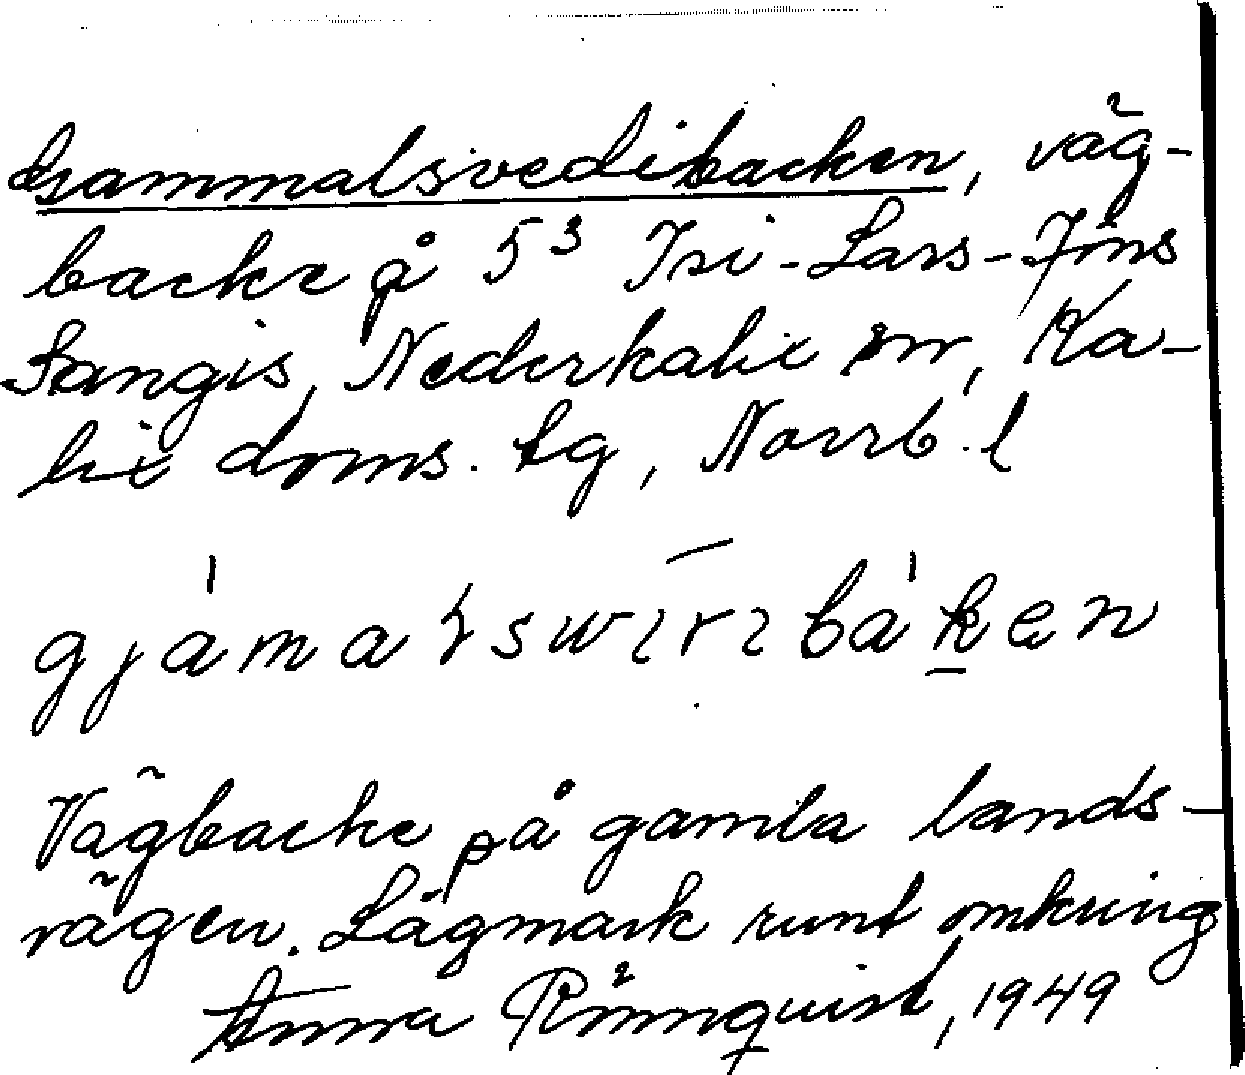 Gammalsvedibacken, väg-
backe på 5³ Isi-Lars-Jöns
Sangis, Nederkalix sn, Ka-
lix doms. tg, Norrb. l
Vägbacke på gamla lands-
vägen. Lågmark runt omkring
Anna Rönnquist, 1949